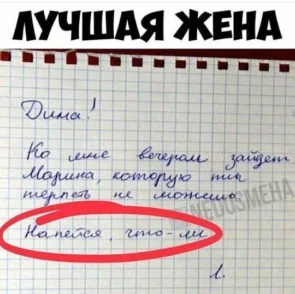 ЛУЧШАЯ ЖЕНА
Дима!
Ко мне вечером зайдет
Марина, которую ты
терпеть не можешь.
Напейся, что-ли
Л.